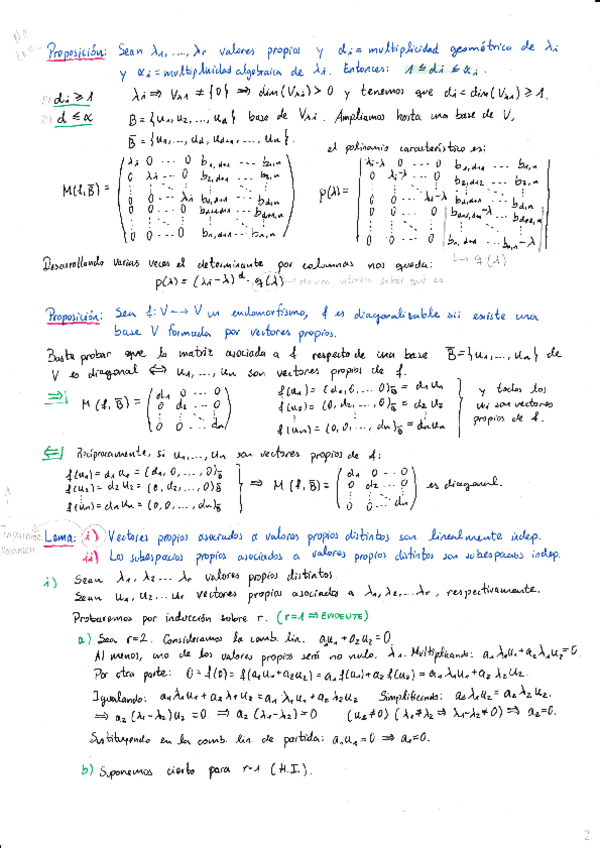 Proposición: Sean λ1, ..., λr valores propios y di = multiplicidad geométrica de λi
y αi = multiplicidad algebraica de λi. Entonces: 1 ≤ di ≤ αi.
1) di ≥ 1 λi ⇒ Vλi ≠ {0} ⇒ dim(Vλi) > 0 y tenemos que di = dim(Vλi) ≥ 1.
2) d ≤ α B = {u1, u2, ..., ud} base de Vλi. Ampliamos hasta una base de V,
B̄ = {u1, ..., ud, ud+1, ..., un}.
el polinomio característico es:
M(f, B̄) = ( λi 0 ... 0 b1,d+1 ... b1,n
0 λi ... 0 b2,d+1 ... b2,n
0 0 ... λi bd,d+1 ... bd,n
0 0 ... 0 bd+1,d+1 ... bd+1,n
0 0 ... 0 bn,d+1 ... bn,n )
p(λ) = | λi-λ 0 ... 0 b1,d+1 ... b1,n
0 λi-λ ... 0 b2,d+1 ... b2,n
0 0 ... λi-λ bd,d+1 ... bd,n
0 0 ... 0 bd+1,d+1-λ ... bd+1,n
0 0 ... 0 bn,d+1 ... bn,n-λ |
↳ q(λ)
Desarrollando varias veces el determinante por columnas nos queda:
p(λ) = (λi-λ)^d · q(λ) → no nos interesa saber qué es
Proposición: Sea f: V → V un endomorfismo, f es diagonalizable sii existe una
base V formada por vectores propios.
Basta probar que la matriz asociada a f respecto de una base B̄ = {u1, ..., un} de
V es diagonal ⇔ u1, ..., un son vectores propios de f.
⇒| M(f, B̄) = ( d1 0 ... 0
0 d2 ... 0
0 0 ... dn )
f(u1) = (d1, 0, ... 0)B̄ = d1u1
f(u2) = (0, d2, ..., 0)B̄ = d2u2
f(un) = (0, 0, ..., dn)B̄ = dnun
y todos los
ui son vectores
propios de f.
⇐| Recíprocamente, si u1, ..., un son vectores propios de f:
f(u1) = d1u1 = (d1, 0, ..., 0)B̄
f(u2) = d2u2 = (0, d2, ..., 0)B̄
f(un) = dnun = (0, 0, ..., dn)B̄
⇒ M(f, B̄) = ( d1 0 ... 0
0 d2 ... 0
0 0 ... dn ) es diagonal.
Lema: i) Vectores propios asociados a valores propios distintos son linealmente indep.
ii) Los subespacios propios asociados a valores propios distintos son subespacios indep.
i) Sean λ1, λ2 ... λr valores propios distintos.
Sean u1, u2 ... ur vectores propios asociados a λ1, λ2, ... λr, respectivamente.
Probaremos por inducción sobre r. (r=1 ⇒ EVIDENTE)
a) Sea r=2. Consideramos la comb. lin. a1u1 + a2u2 = 0
Al menos, uno de los valores propios será no nulo. λ1. Multiplicando: a1λ1u1 + a2λ1u2 = 0.
Por otra parte: 0 = f(0) = f(a1u1 + a2u2) = a1f(u1) + a2f(u2) = a1λ1u1 + a2λ2u2.
Igualando: a1λ1u1 + a2λ1u2 = a1λ1u1 + a2λ2u2 Simplificando: a2λ1u2 = a2λ2u2.
⇒ a2(λ1-λ2)u2 = 0 ⇒ a2(λ1-λ2) = 0 (u2≠0) (λ1≠λ2 ⇒ λ1-λ2≠0) ⇒ a2=0.
Sustituyendo en la comb. lin de partida: a1u1 = 0 ⇒ a1=0.
b) Suponemos cierto para r-1 (H.I.).
2